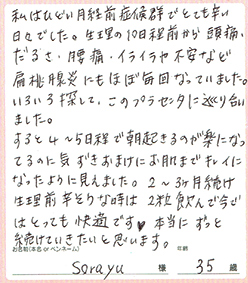 私はひどい月経前症候群でとても辛い
日々でした。生理の10日程前から頭痛・
だるさ・腰痛・イライラや不安など
扁桃腺炎にもほぼ毎回なっていました。
いろいろ探して、このプラセンタに巡り合い
ました。
すると4～5日程で朝起きるのが楽になっ
てるのに気ずきおまけにお肌までキレイに
なったように見えました。2～3ヶ月続け
生理前辛そうな時は2粒飲んで今で
はとっても快適です♥本当にずっと
続けていきたいと思います。
お名前(本名orペンネーム) 年齢
sorayu 様 35 歳